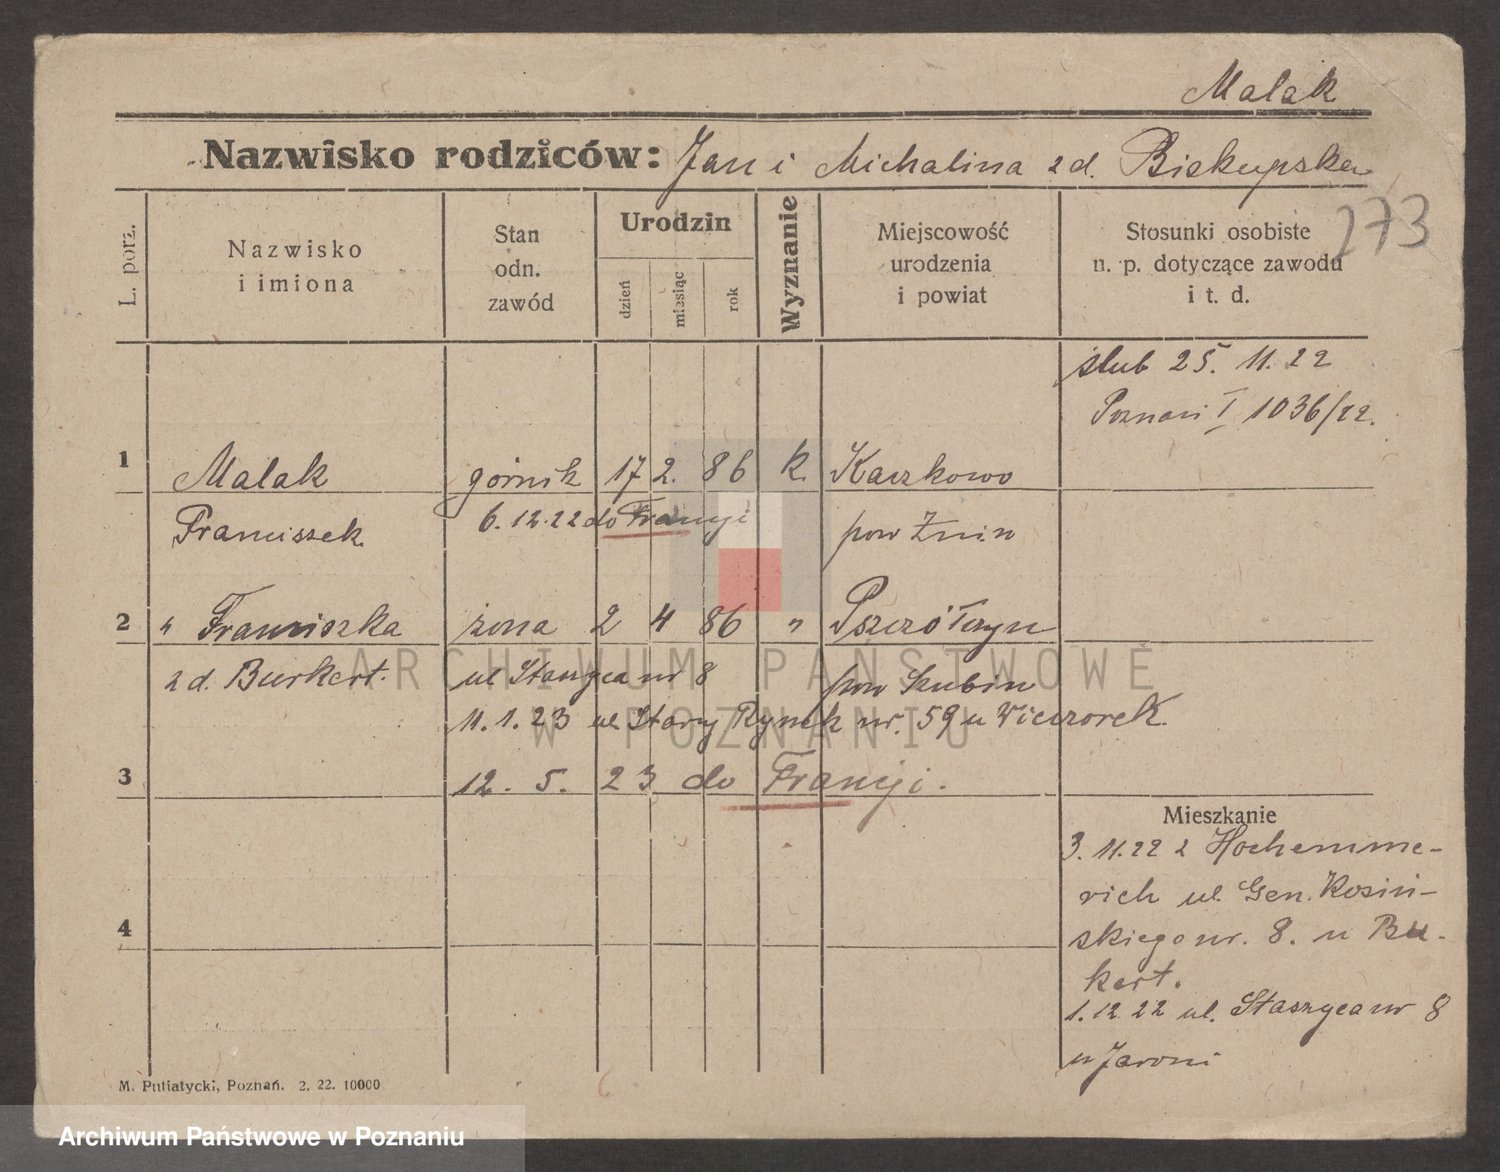 Malak
Nazwisko rodziców: Jan i Michalina z d. Biskupska
273
L. porz.
Nazwisko i imiona
Stan odn. zawód
Urodzin
dzień
miesiąc
rok
Wyznanie
Miejscowość urodzenia i powiat
Stosunki osobiste n. p. dotyczące zawodu i t. d.
ślub 25. 11. 22
Poznań I 1036/22.
1 Malak górnik 17 2. 86 k. Kaczkowo
Franciszek 6.12.22 do Francji pow Żnin
2 " Franciszka żona 2 4 86 " Pszczółczyn
z d. Burkert. ul Staszyca nr 8 pow Szubin
11.1.23 ul. Stary Rynek nr. 59 u Wieczorek
3 12. 5. 23 do Francji.
Mieszkanie
3. 11. 22 z Hochemme-
rich ul. Gen. Kosiń-
4 skiego nr. 8. u Bu-
kert.
1. 12 22 ul. Staszyca nr 8
u Jaroni
M. Putiatycki, Poznań. 2. 22. 10000
ARCHIWUM PAŃSTWOWE
W POZNANIU
Archiwum Państwowe w Poznaniu